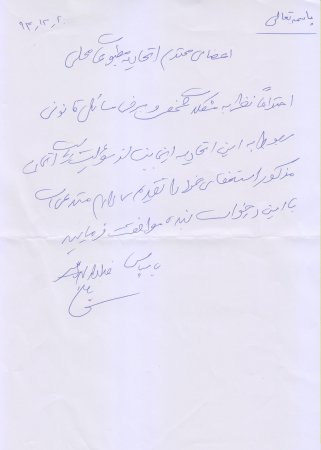 باسمه تعالی
۹۳,۱۲,۲۰
اعضای محترم اتحادیه مطبوعات محلی
احتراماً نظر به مشکلات شخصی و برخی مسائل قانونی
مربوط به این اتحادیه اینجانب از مسئولیت ریاست اتحادیه
مذکور استعفای خود را تقدیم می‌دارم مستدعی است
با این درخواست بنده موافقت فرمایید
با سپاس